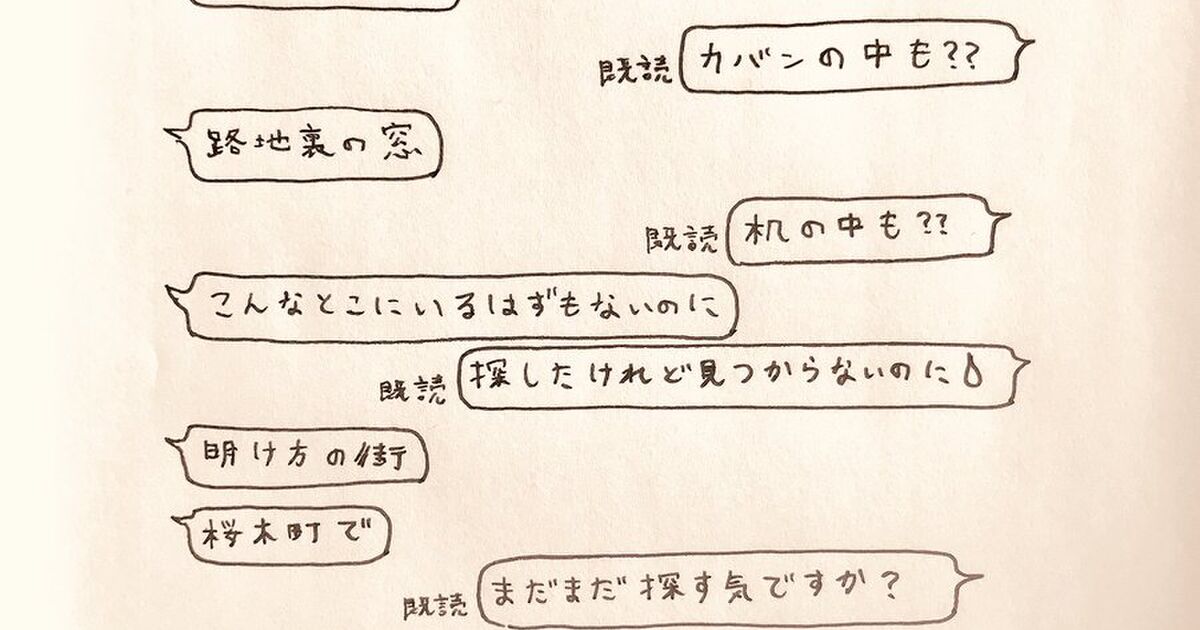 既読 カバンの中も??
路地裏の窓
既読 机の中も??
こんなとこにいるはずもないのに
既読 探したけれど見つからないのに
明け方の街
桜木町で
既読 まだまだ探す気ですか?